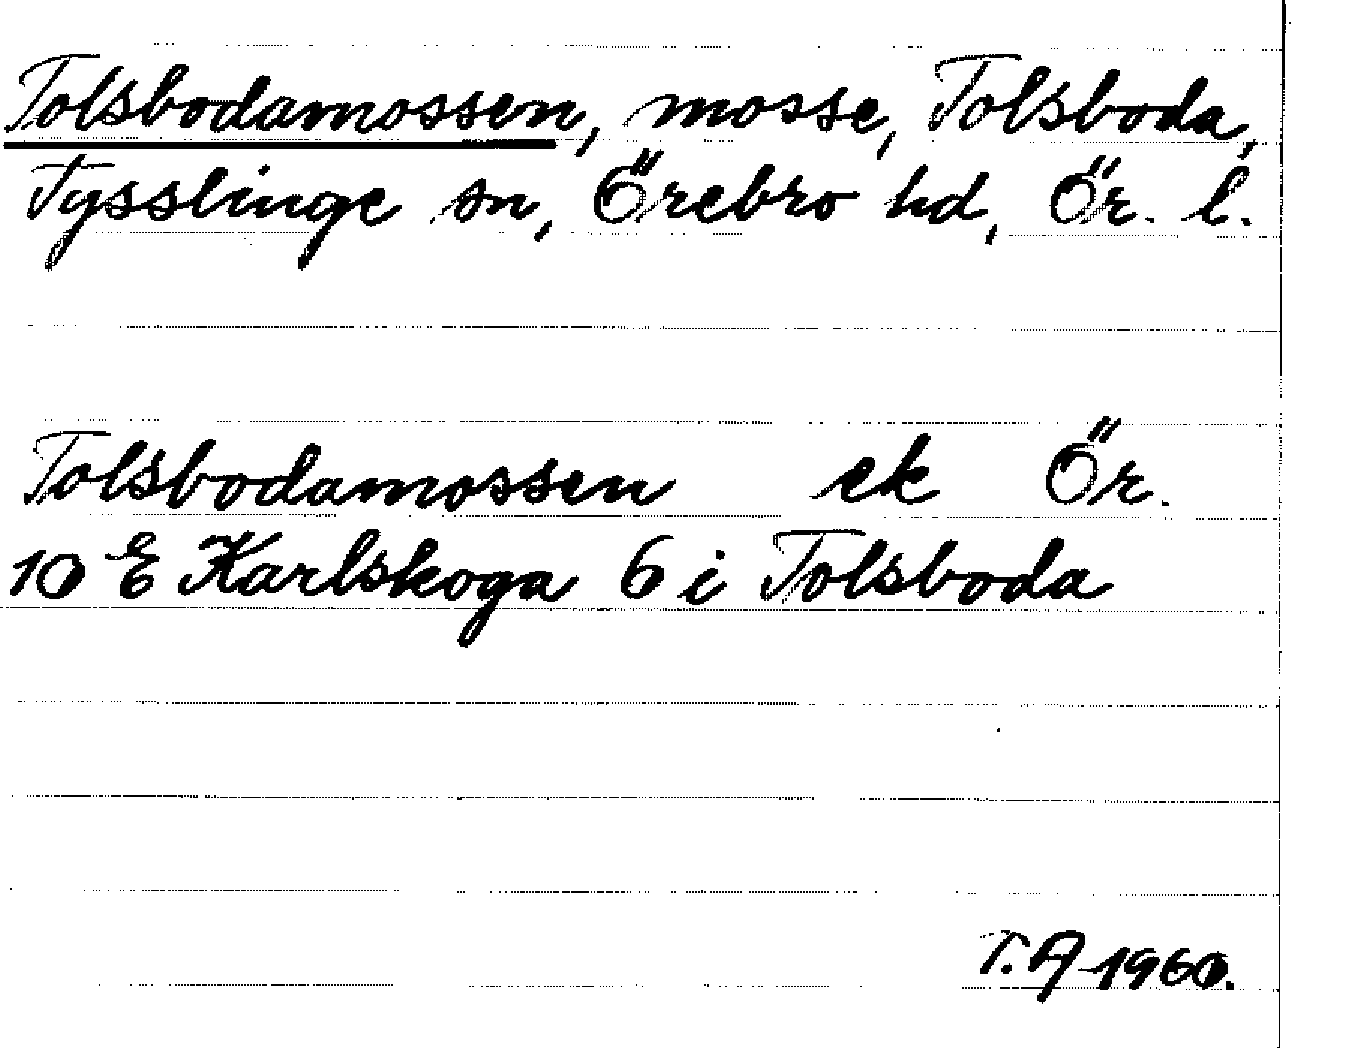 Tolsbodamossen, mosse, Tolsboda,
Tysslinge sn, Örebro hd, Ör. l.
Tolsbodamossen ek Ör.
10 E Karlskoga 6 i Tolsboda
T. A 1960.